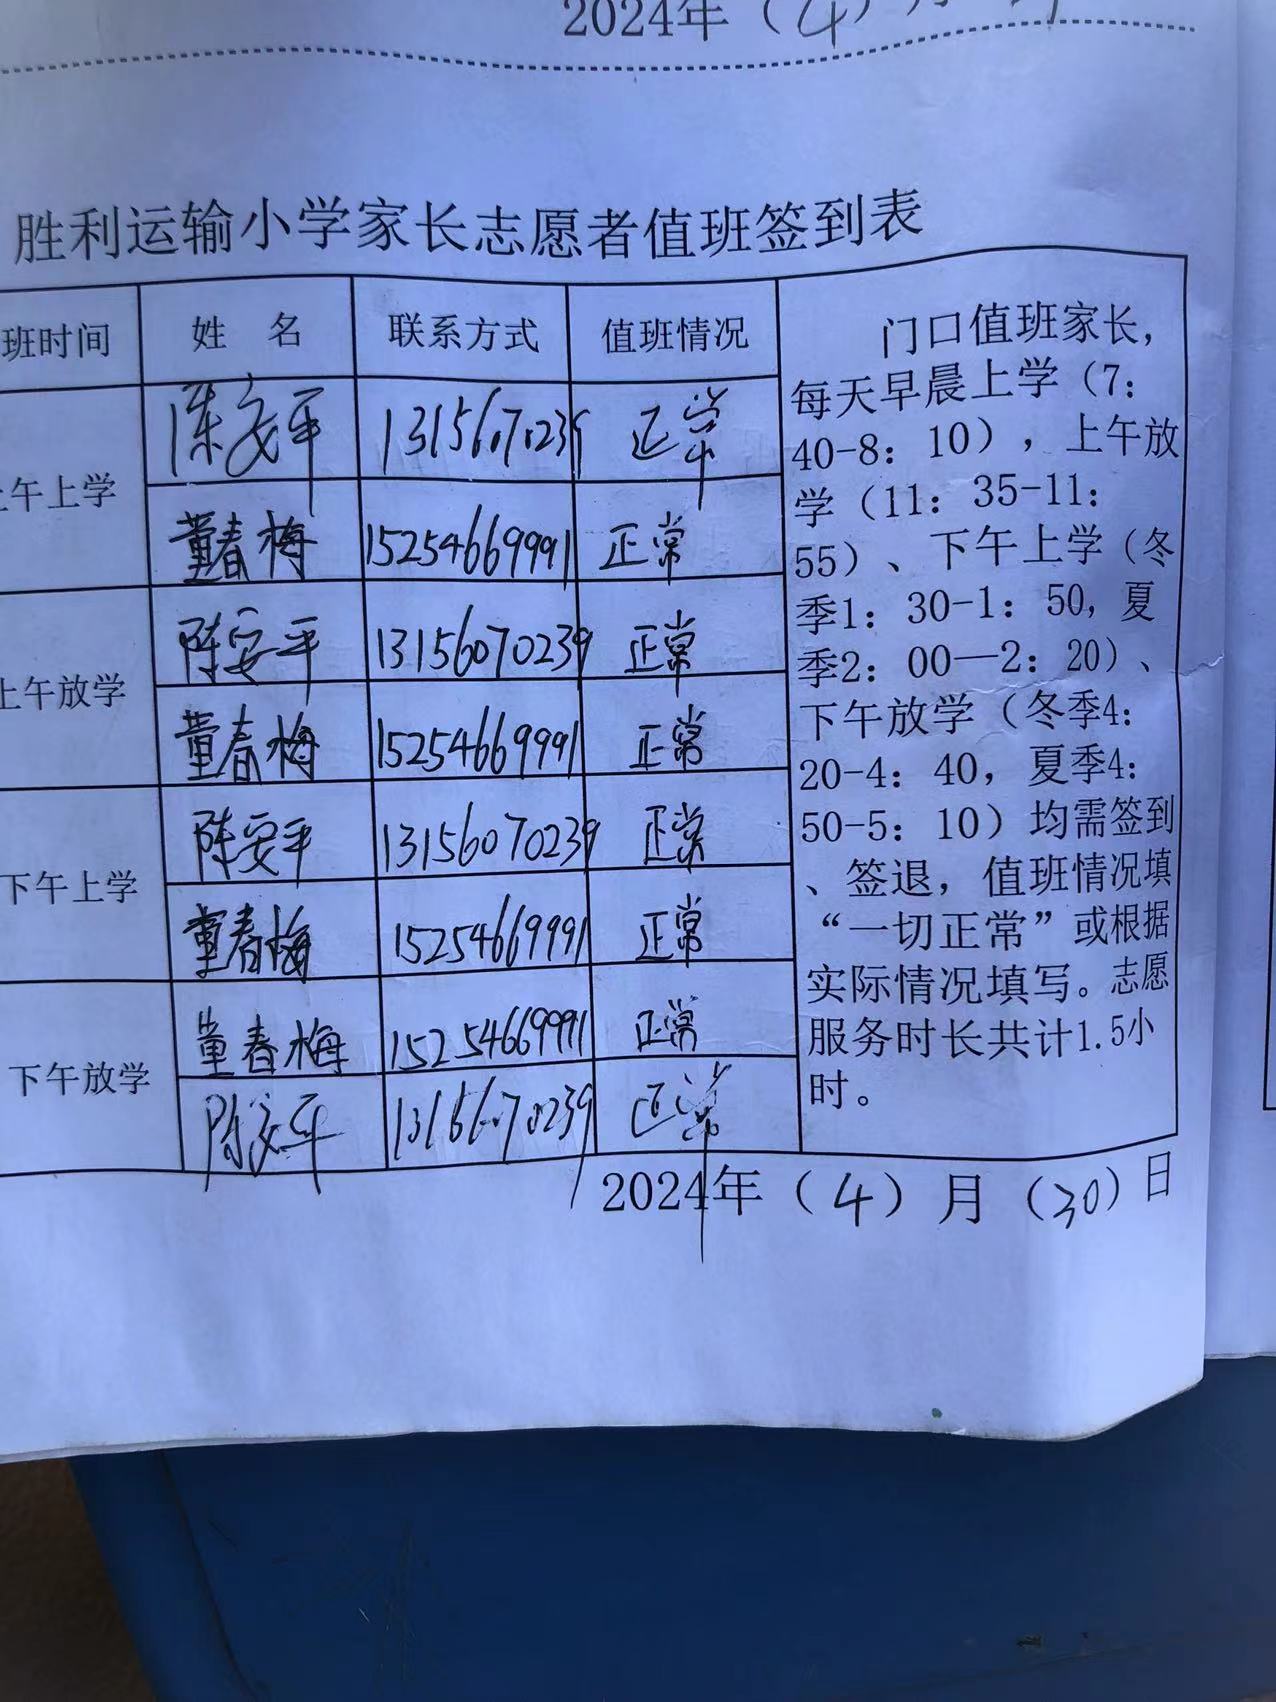 2024年（4）月
胜利运输小学家长志愿者值班签到表
班时间 姓 名 联系方式 值班情况
上午上学 陈安平 13156070239 正常
董春梅 15254669991 正常
上午放学 陈安平 13156070239 正常
董春梅 15254669991 正常
下午上学 陈安平 13156070239 正常
董春梅 15254669991 正常
下午放学 董春梅 15254669991 正常
陈安平 13156070239 正常
门口值班家长，
每天早晨上学（7：
40-8：10），上午放
学（11：35-11：
55）、下午上学（冬
季1：30-1：50，夏
季2：00—2：20）、
下午放学（冬季4：
20-4：40，夏季4：
50-5：10）均需签到
、签退，值班情况填
“一切正常”或根据
实际情况填写。志愿
服务时长共计1.5小
时。
2024年（4）月（30）日